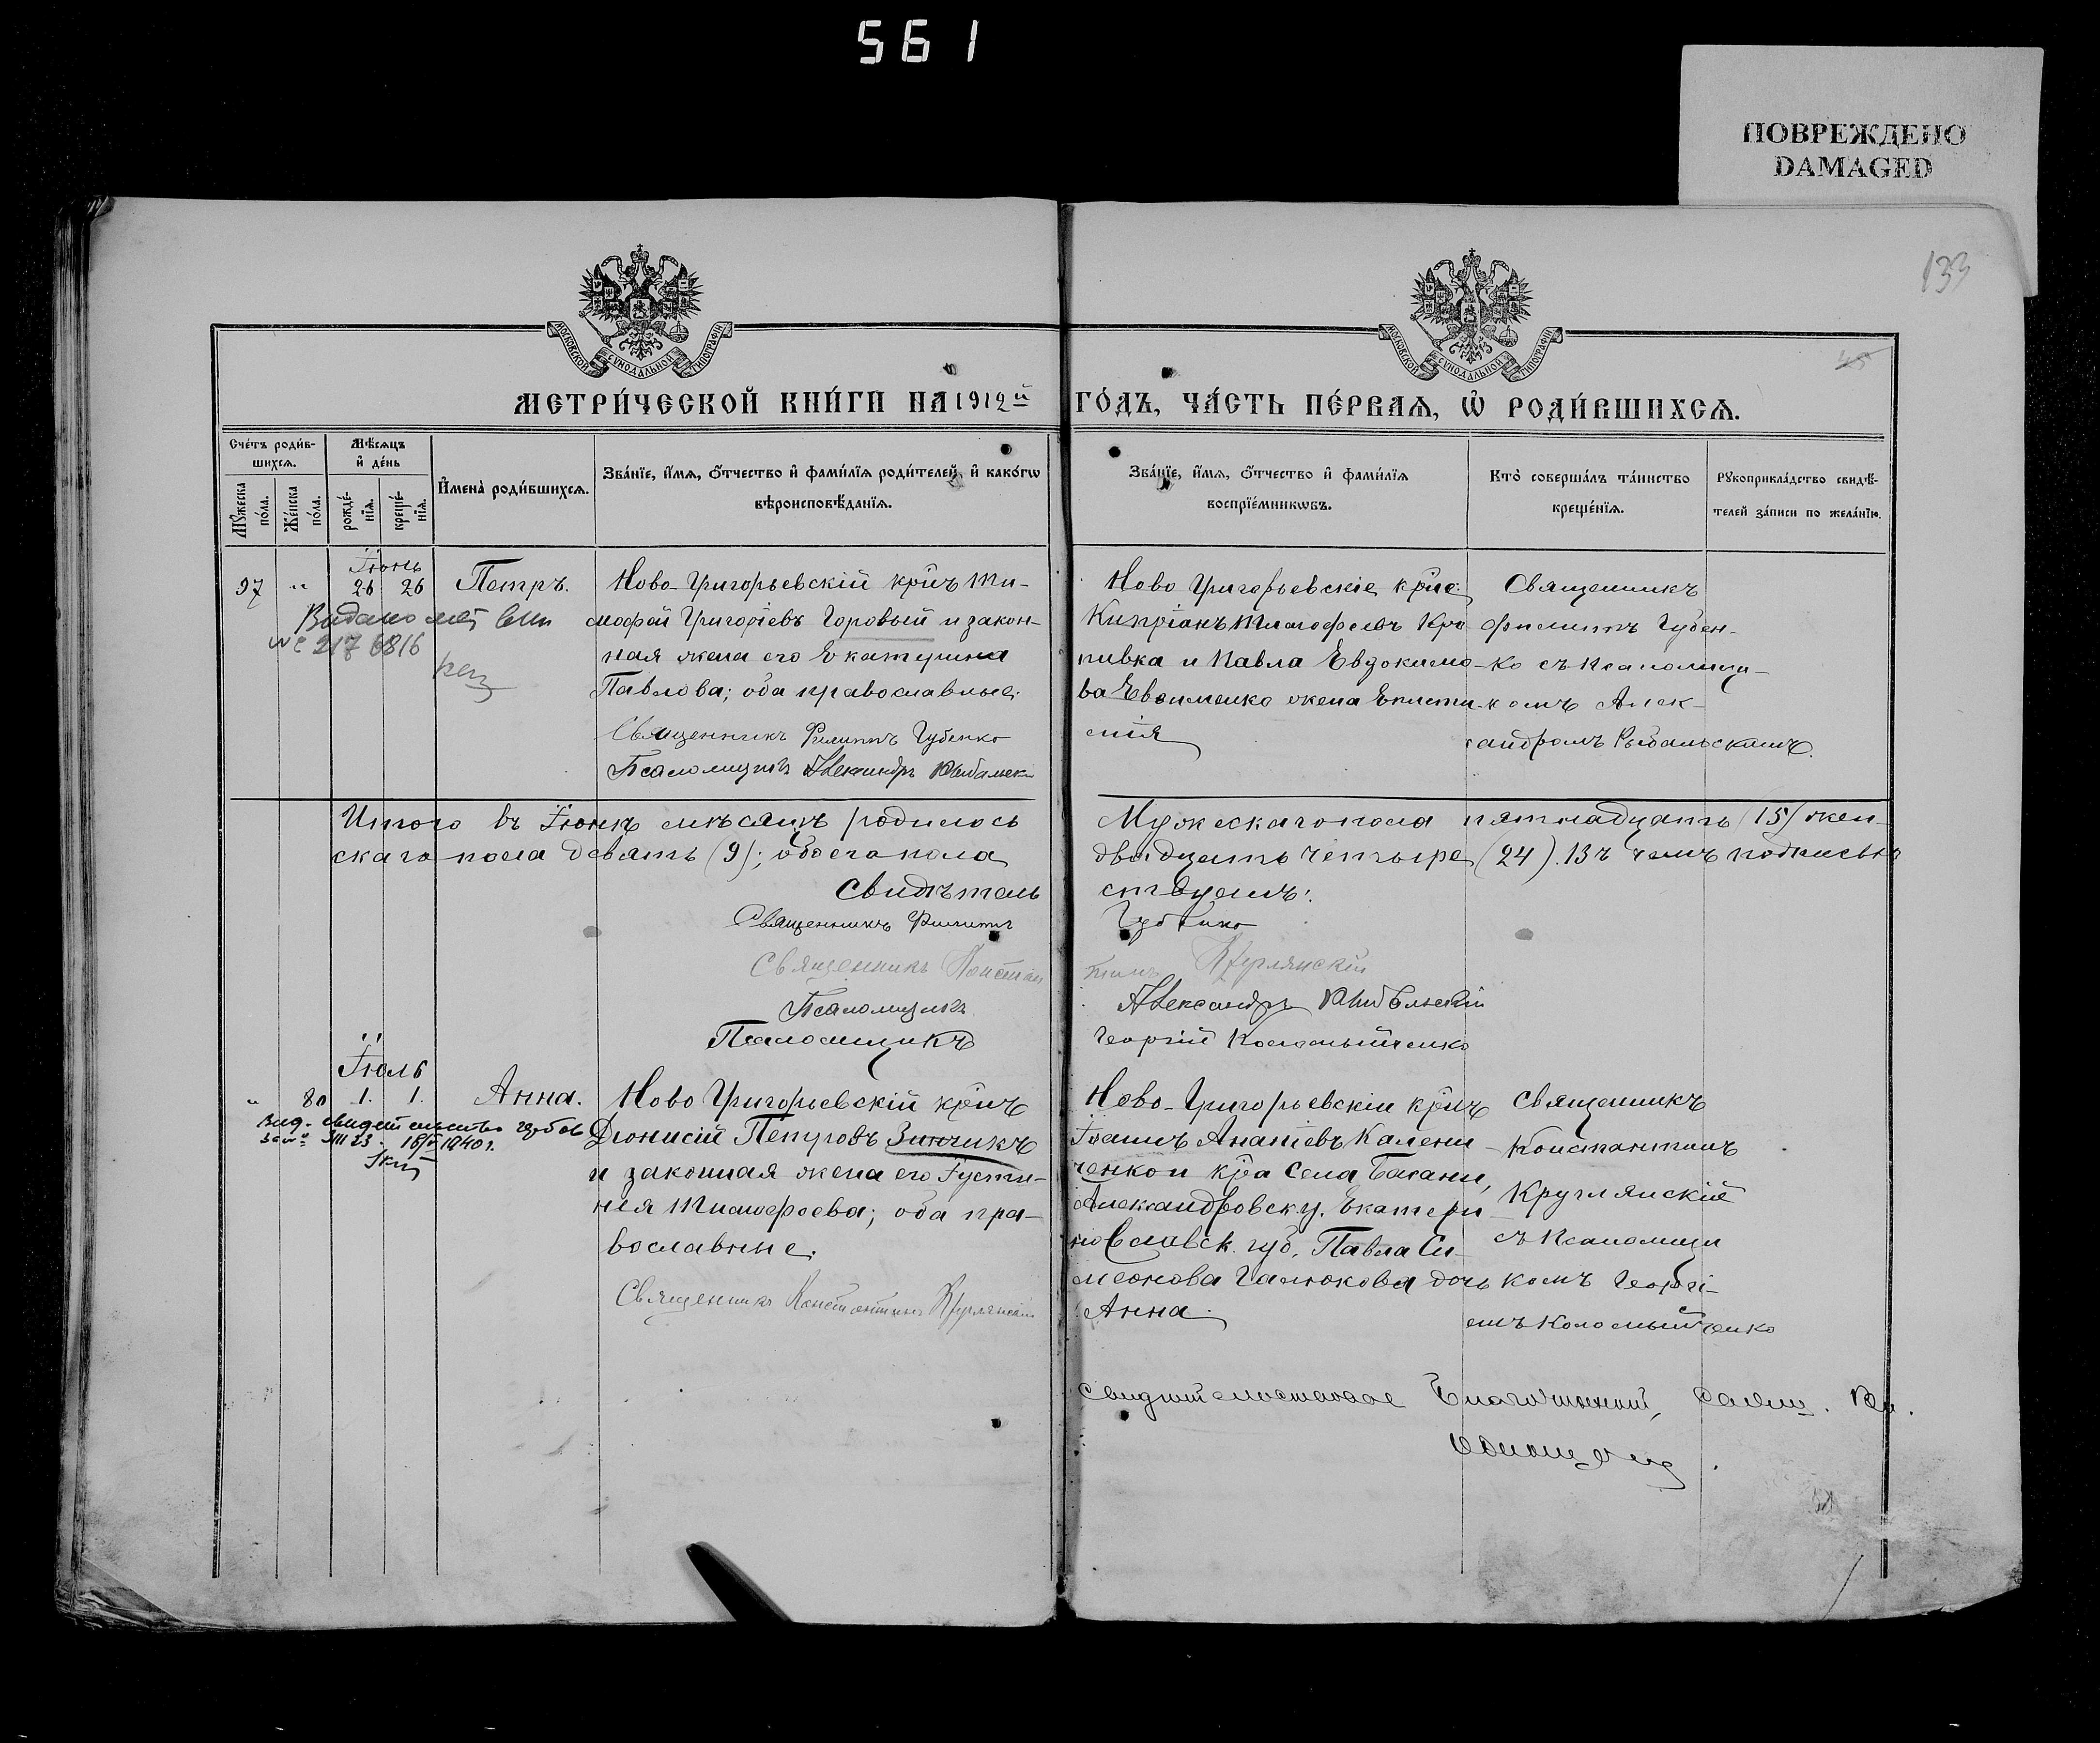 561
ПОВРЕЖДЕНО
DAMAGED
133
45
МОСКОВСКОЙ СѴНОДАЛЬНОЙ ТИПОГРАФІИ
МОСКОВСКОЙ СѴНОДАЛЬНОЙ ТИПОГРАФІИ
МЕТРИ́ЧЕСКОЙ КНИ́ГИ НА 1912й ГО́ДЪ, ЧА́СТЬ ПЕ́РВАѦ, Ѡ҆ РОДИ́ВШИХСѦ.
Сче́тъ роди́в-
шихсѧ.
Мѣ́сѧцъ
и҆ де́нь
Мꙋ́жеска по́ла.
Же́нска по́ла.
рожде́-
нїѧ.
креще́-
нїѧ.
И҆мена̀ роди́вшихсѧ.
Зва́нїе, и҆́мѧ, ѻ҆́тчество и҆ фами́лїѧ роди́телей, и҆ како́гѡ
вѣроисповѣ́данїѧ.
Зва́нїе, и҆́мѧ, ѻ҆́тчество и҆ фами́лїѧ
воспрїе́мникѡвъ.
Кто̀ соверша́лъ та́инство
креще́нїѧ.
Рꙋкоприкла́дство свидѣ́-
телей за́писи по жела́нїю.
Іюнь
97 " 26 26 Петръ.
Ново-Григорьевскій кр̃нъ Ти-
мофей Григоріевъ Горовый и закон-
ная жена его Екатерина
Павлова; оба православные.
Священникъ Филиппъ Губенко
Псаломщикъ Александръ Рыбальск
Видано
№ 217
Ново Григорьевскіе кр̃не:
Кипріанъ Тимофеевъ Кро
пивка и Павла Евдокимо-
ва Евсименко жена Еписти
мія
Священникъ
Филиппъ Губен-
ко съ псаломщи-
комъ Алек-
сандромъ Рыбальскимъ.
Итого въ Іюнѣ мѣсяцѣ родилось Мужескаго пола пятнадцать (15) жен-
скаго пола девять (9); обоего пола двадцать четыре (24). Въ чемъ подписью
свидѣтель ствуемъ:
Священникъ Филиппъ Губенко
Священникъ Констан тинъ Круглянскій
Псаломщикъ Александръ Рыбальскій
Псаломщикъ Георгій Коломыйченко
Іюль
" 80 1. 1. Анна.
Вид. свидетельство
16/IV 1940 г.
Ново Григорьевскій кр̃нъ
Діонисій Петровъ Зинчикъ
и законная жена его Іусти-
нія Тимофеева; оба пра-
вославные.
Священникъ Константинъ Круглянскій
Ново-Григорьевскій кр̃нъ
Іоаннъ Ананіевъ Калени
ченко и кр̃ка села Басани,
Александровск. у. Екатери
нославск. губ. Павла Си-
меонова Галюкова дочь
Анна.
Священникъ
Константинъ
Круглянскій
съ псаломщи
комъ Георгі-
емъ Коломыйченко
Свидѣтельствовалъ Благочинный, Свящ.